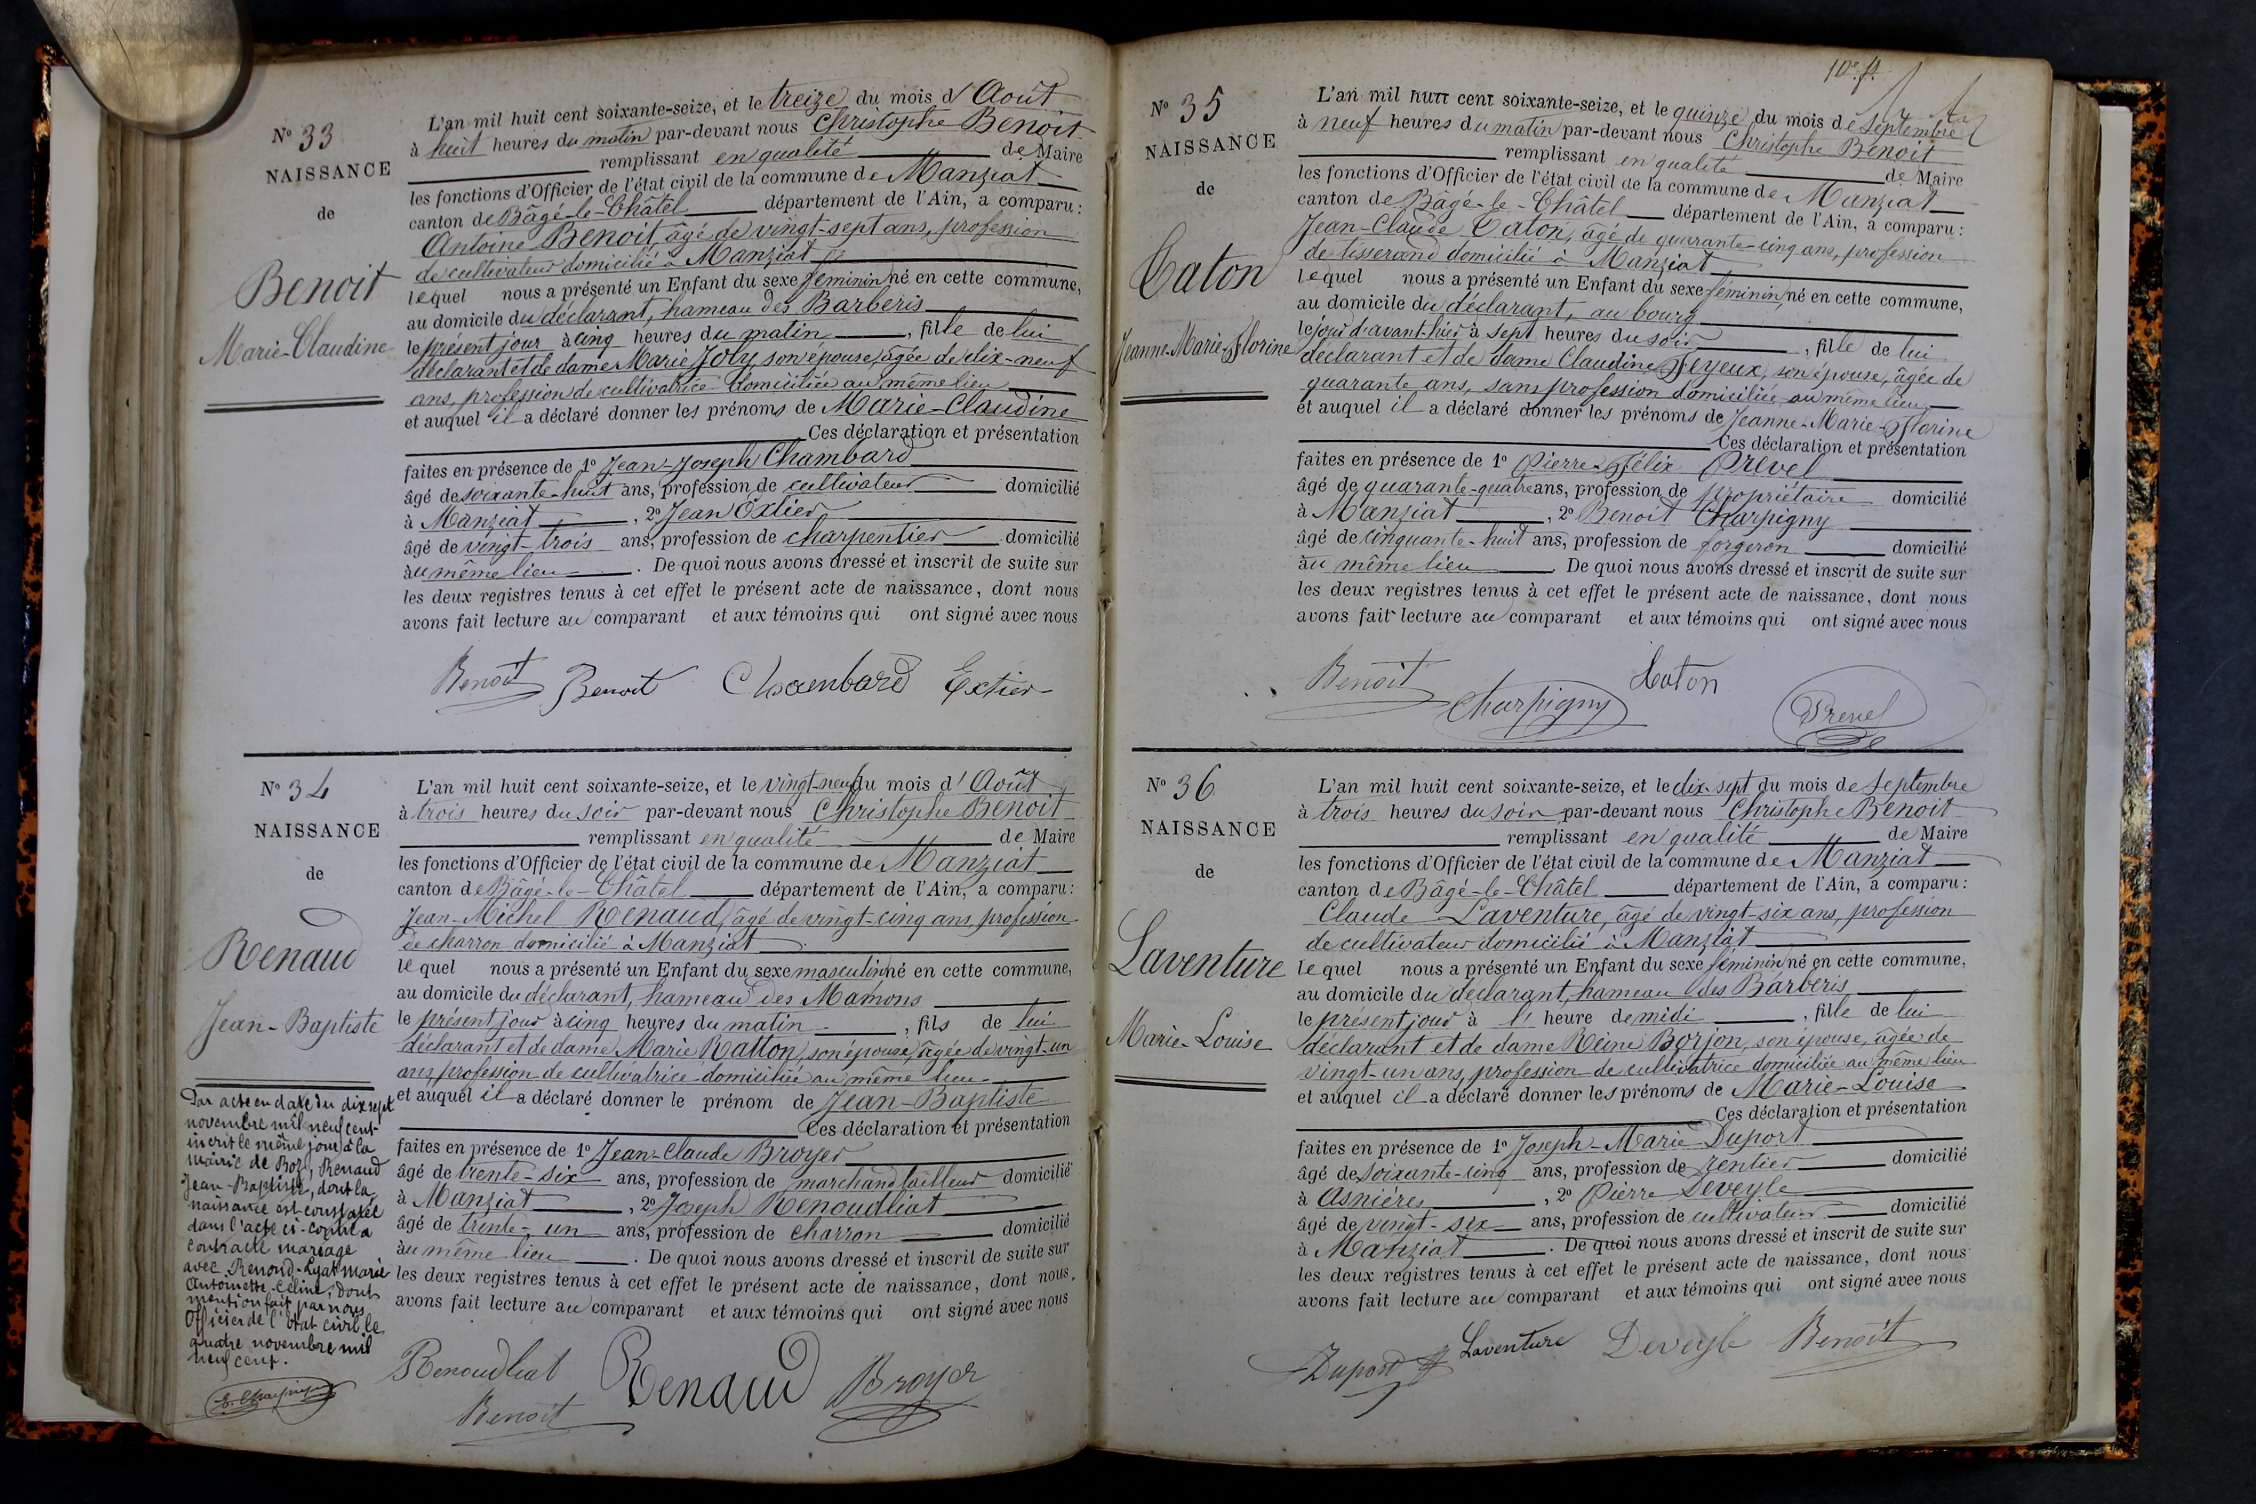 N° 33
NAISSANCE
de
Benoit
Marie-Claudine
L'an mil huit cent soixante-seize, et le treize du mois d'Août
à huit heures du matin par-devant nous Christophe Benoit
remplissant en qualité de Maire
les fonctions d'Officier de l'état civil de la commune de Manziat
canton de Bâgé-le-Châtel département de l'Ain, a comparu:
Antoine Benoit, âgé de vingt-sept ans, profession
de cultivateur domicilié à Manziat
lequel nous a présenté un Enfant du sexe féminin né en cette commune,
au domicile du déclarant, hameau des Barberis
le présent jour à cinq heures du matin, fille de lui
déclarant et de dame Marie Joly, son épouse, âgée de dix-neuf
ans, profession de cultivatrice domiciliée au même lieu
et auquel il a déclaré donner les prénoms de Marie-Claudine
Ces déclaration et présentation
faites en présence de 1° Jean-Joseph Chambard
âgé de soixante-huit ans, profession de cultivateur domicilié
à Manziat, 2° Jean Extier
âgé de vingt-trois ans, profession de charpentier domicilié
au même lieu. De quoi nous avons dressé et inscrit de suite sur
les deux registres tenus à cet effet le présent acte de naissance, dont nous
avons fait lecture au comparant et aux témoins qui ont signé avec nous
Benoit Benoit Chambard Extier
N° 34
NAISSANCE
de
Renaud
Jean-Baptiste
Par acte en date du dix sept
novembre mil neuf cent
inscrit le même jour à la
mairie de Boz, Renaud
Jean-Baptiste, dont la
naissance est constatée
dans l'acte ci-contre a
contracté mariage
avec Renoud-Lyat Marie
Antoinette-Céline, dont
mention fait par nous
Officier de l'état civil le
quatre novembre mil
neuf cent.
L'an mil huit cent soixante-seize, et le vingt-neuf du mois d'Août
à trois heures du soir par-devant nous Christophe Benoit
remplissant en qualité de Maire
les fonctions d'Officier de l'état civil de la commune de Manziat
canton de Bâgé-le-Châtel département de l'Ain, a comparu:
Jean-Michel Renaud, âgé de vingt-cinq ans, profession
de charron domicilié à Manziat
lequel nous a présenté un Enfant du sexe masculin né en cette commune,
au domicile du déclarant, hameau des Mamons
le présent jour à cinq heures du matin, fils de lui
déclarant et de dame Marie Ratton, son épouse, âgée de vingt-un
ans, profession de cultivatrice domiciliée au même lieu
et auquel il a déclaré donner le prénom de Jean-Baptiste
Ces déclaration et présentation
faites en présence de 1° Jean-Claude Broyer
âgé de trente-six ans, profession de marchand tailleur domicilié
à Manziat, 2° Joseph Renoudliat
âgé de trente-un ans, profession de charron domicilié
au même lieu. De quoi nous avons dressé et inscrit de suite sur
les deux registres tenus à cet effet le présent acte de naissance, dont nous
avons fait lecture au comparant et aux témoins qui ont signé avec nous
Renoudliat Renaud Broyer
Benoit
10e. f.
N° 35
NAISSANCE
de
Caton
Jeanne-Marie-Florine
L'an mil huit cent soixante-seize, et le quinze du mois de Septembre
à neuf heures du matin par-devant nous Christophe Benoit
remplissant en qualité de Maire
les fonctions d'Officier de l'état civil de la commune de Manziat
canton de Bâgé-le-Châtel département de l'Ain, a comparu:
Jean-Claude Caton, âgé de quarante-cinq ans, profession
de tisserand domicilié à Manziat
lequel nous a présenté un Enfant du sexe féminin né en cette commune,
au domicile du déclarant, au bourg
le jour d'avant-hier à sept heures du soir, fille de lui
déclarant et de dame Claudine Feyeux, son épouse, âgée de
quarante ans, sans profession domiciliée au même lieu
et auquel il a déclaré donner les prénoms de Jeanne-Marie-Florine
Ces déclaration et présentation
faites en présence de 1° Pierre-Félix Prevel
âgé de quarante-quatre ans, profession de propriétaire domicilié
à Manziat, 2° Benoit Charpigny
âgé de cinquante-huit ans, profession de forgeron domicilié
au même lieu. De quoi nous avons dressé et inscrit de suite sur
les deux registres tenus à cet effet le présent acte de naissance, dont nous
avons fait lecture au comparant et aux témoins qui ont signé avec nous
Benoit Charpigny Caton Prevel
N° 36
NAISSANCE
de
Laventure
Marie-Louise
L'an mil huit cent soixante-seize, et le dix sept du mois de Septembre
à trois heures du soir par-devant nous Christophe Benoit
remplissant en qualité de Maire
les fonctions d'Officier de l'état civil de la commune de Manziat
canton de Bâgé-le-Châtel département de l'Ain, a comparu:
Claude Laventure, âgé de vingt-six ans, profession
de cultivateur domicilié à Manziat
lequel nous a présenté un Enfant du sexe féminin né en cette commune,
au domicile du déclarant, hameau des Barberis
le présent jour à l' heure de midi, fille de lui
déclarant et de dame Reine Borjon, son épouse, âgée de
vingt-un ans, profession de cultivatrice domiciliée au même lieu
et auquel il a déclaré donner les prénoms de Marie-Louise
Ces déclaration et présentation
faites en présence de 1° Joseph-Marie Duport
âgé de soixante-cinq ans, profession de rentier domicilié
à Asnières, 2° Pierre Deveyle
âgé de vingt-six ans, profession de cultivateur domicilié
à Manziat. De quoi nous avons dressé et inscrit de suite sur
les deux registres tenus à cet effet le présent acte de naissance, dont nous
avons fait lecture au comparant et aux témoins qui ont signé avec nous
Duport Laventure Deveyle Benoit